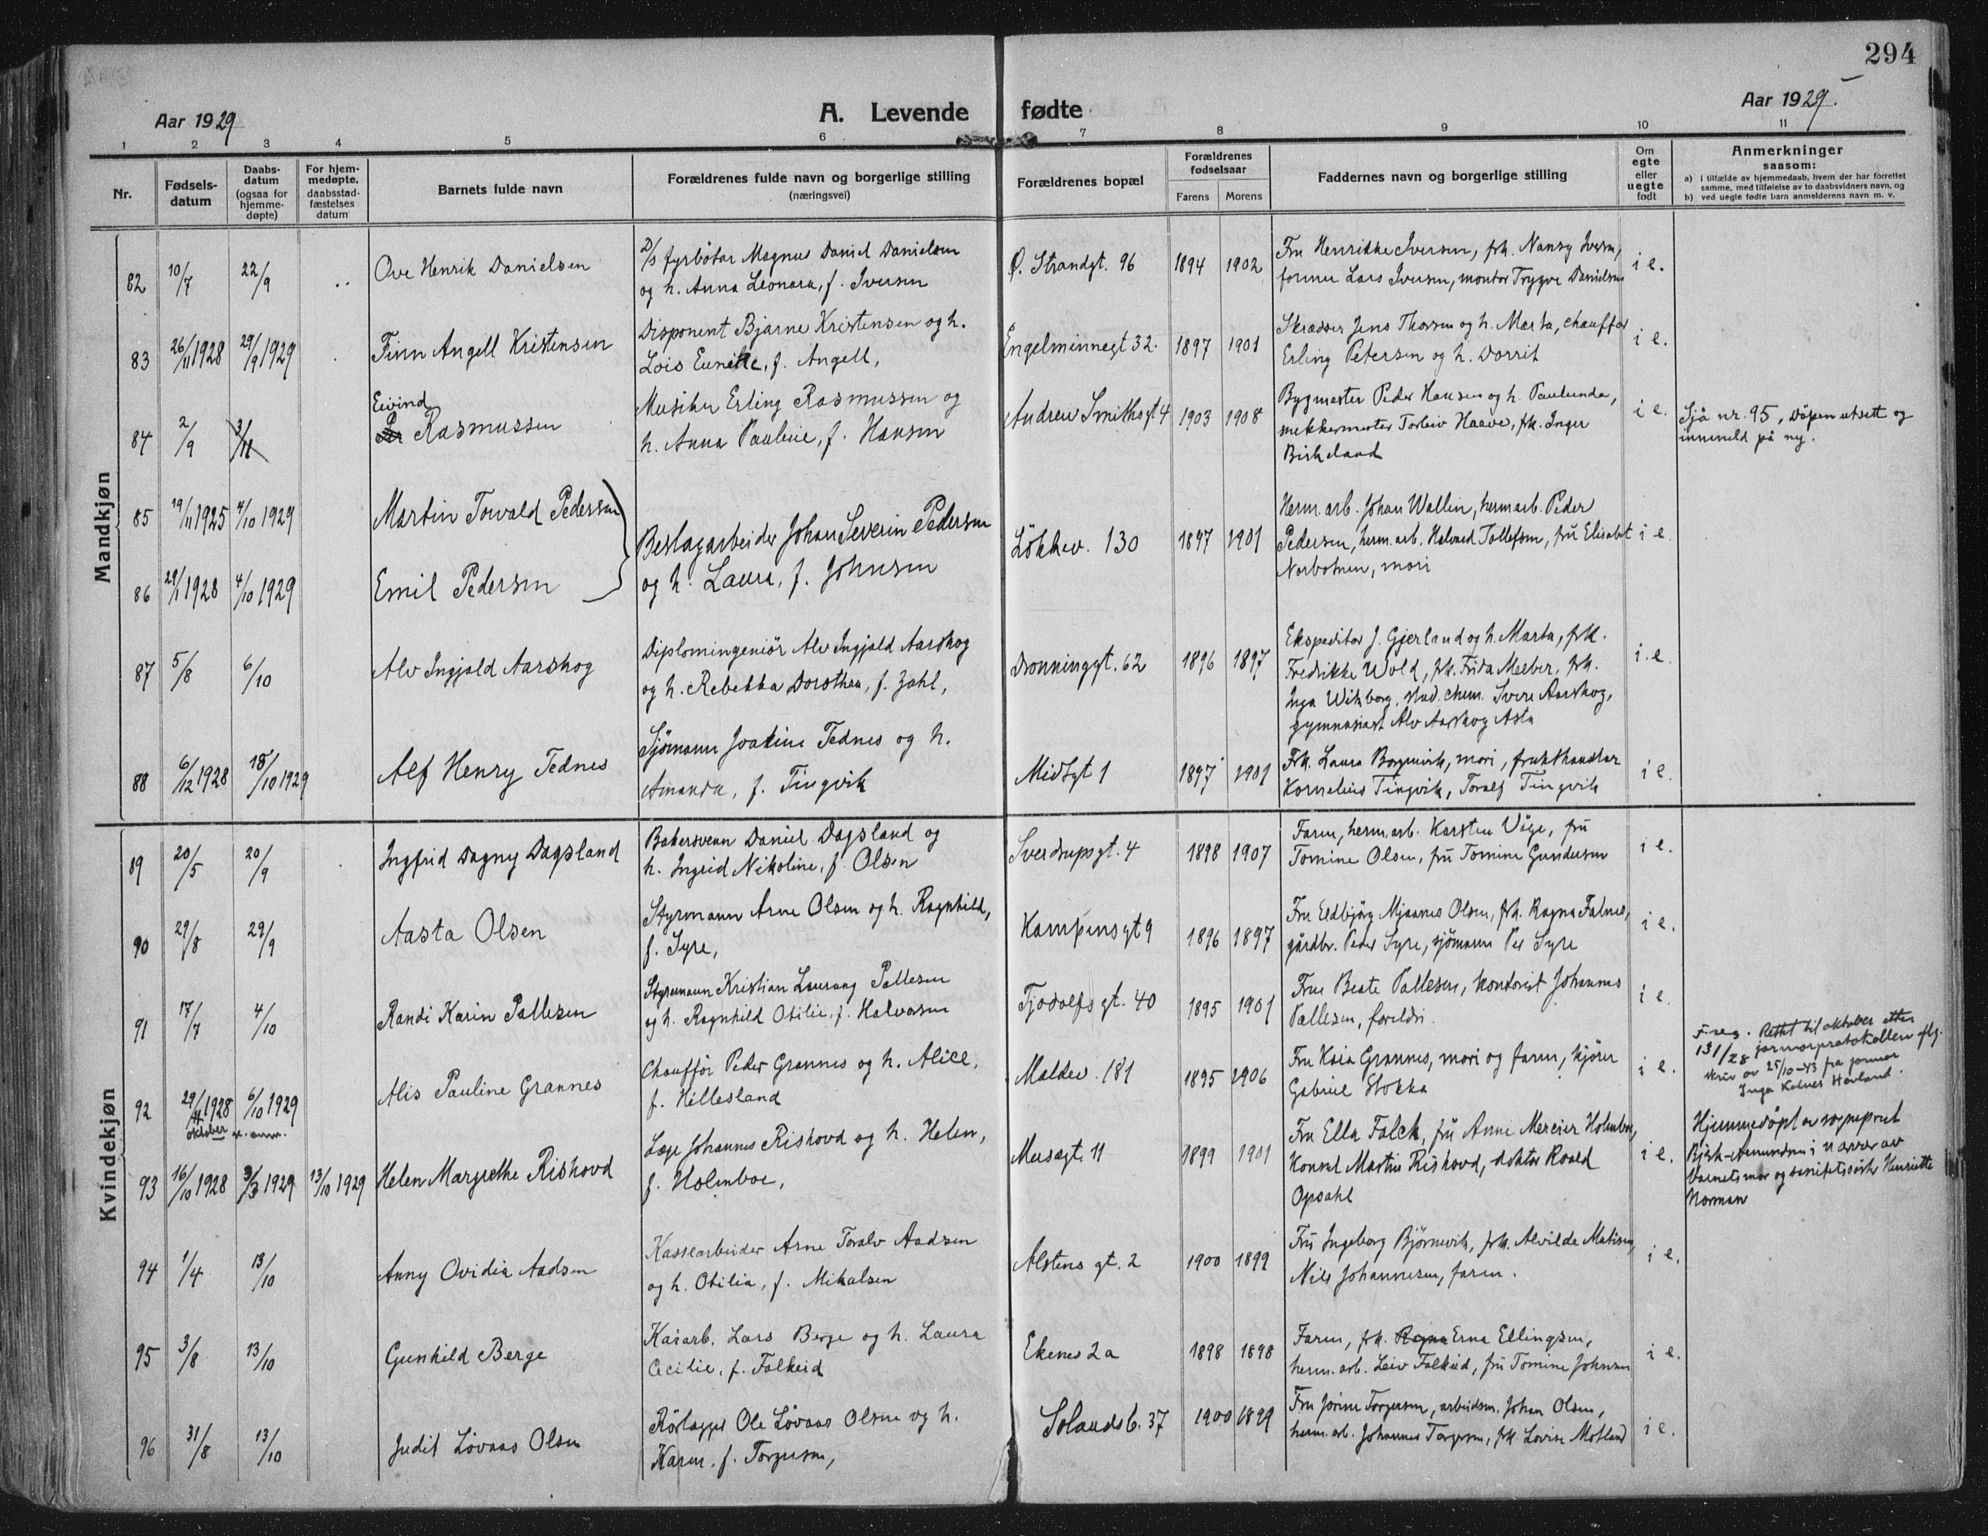 294
Aar 1929
A. Levende fødte
Aar 1929.
1 2 3 4 5 6 7 8 9 10 11
Nr.
Fødsels-
datum
Daabs-
datum
(ogsaa for
hjemme-
døpte)
For hjem-
medøpte,
daabsstad-
fæstelses
datum
Barnets fulde navn
Forældrenes fulde navn og borgerlige stilling
(næringsvei)
Forældrenes bopæl
Forældrenes
fødselsaar
Farens Morens
Faddernes navn og borgerlige stilling
Om
egte
eller
uegte
født
Anmerkninger
saasom:
a) i tilfælde av hjemmedaab, hvem der har forrettet
samme, med tilføielse av to daabsvidners navn, og
b) ved uegte fødte barn anmelderens navn m. v.
Mandkjøn
82 10/7 22/9 Ove Henrik Danielsen
D/S fyrbøter Magnus Daniel Danielsen
og h. Anna Leonara, f. Iversen
Ø. Strandgt. 96 1894 1902
Fru Henrikke Iversen, frk. Nancy Iversen,
former Lars Iversen, montør Trygve Danielsen
i e.
83 26/11 1928 29/9 1929 Finn Angell Kristensen
Disponent Bjarne Kristensen og h.
Lois, f. Angell,
Engelminnegt 32. 1897 1901
Skrædder Jens Thorsen og h. Marta, chauffør
Erling Petersen og h. Dorrit
i e.
84 2/9 3/11 Eivind Rasmussen
Musiker Erling Rasmussen og
h. Anna Pauline, f. Hansen
Andrew Smithsgt 4 1903 1908
Bygmester Peder Hansen og h. Paulinda,
snekkermester Torleiv Haave, frk. Inger
Birkeland
i e.
Sjå nr. 95, Dåpen utsett og
innmeld på ny.
85 19/11 1925 4/10 1929 Martin Torvald Pedersen
86 29/1 1928 4/10 1929 Emil Pedersen
Beslagarbeider Johan Severin Pedersen
og h. Laura, f. Johnsen
Løkkev. 130 1897 1901
Herm. arb. Johan Wallin, herm arb. Peder
Pedersen, herm. arb. Halvard Tollefsen, frú Elisabet
mori
i e.
87 5/8 6/10 Alv Ingjald Aarskog
Diplomingeniør Alv Ingjald Aarskog
og h. Rebekka Dorothea, f. Zahl,
Dronninggt. 62 1896 1897
Ekspeditør J. Gjerland og h. Marta, frk.
Fredrikke Wold, frk. Frida Melber, frk.
Inga Witzborg, stud. chem. Sverre Aarskog,
gymnasiast Alv Aarskog Asta
i. e.
88 6/12 1928 18/10 1929 Alf Henry Tednes
Sjømann Joakim Tednes og h.
Amanda, f. Tingvik
Midtgt 1 1897 1901
Frk. Laura Borgenvik, mori, frukthandlar
Kornelius Tingvik, Toralf Tingvik
i e.
Kvindekjøn
89 20/5 20/9 Ingfrid Dagny Dagsland
Bakersvenn Daniel Dagsland og
h. Ingrid Nikoline, f. Olsen
Sverdrupsgt. 4 1898 1907
Faren, herm. arb. Karsten Våge, frú
Tomine Olsen, frú Tomine Gundersen
i e.
90 29/8 29/9 Aasta Olsen
Styrmann Arne Olsen og h. Ragnhild,
f. Syre,
Kampensgt 9 1896 1897
Fru Eldbjörg Mjaanes Olsen, frk. Ragna Falnes,
gårdbr. Peder Syre, sjømann Per Syre
i e.
91 17/7 4/10 Randi Karin Pallesen
Styrmann Kristian Laurang Pallesen
og h. Ragnhild Otilie, f. Halvorsen
Tjodolfs gt. 40 1895 1901
Frue Beate Pallesen, kontorist Johannes
Pallesen, foreldri.
i e.
92 29/11 1928 6/10 1929 Alis Pauline Grannes
oktober se anm.
Chauffør Peder Grannes og h. Alice,
f. Hillesland
Maldev. 181 1895 1906
Fru Kaia Grannes, mori og faren, kjører
Gabriel Stokka
i e.
Rettet til oktober etter
131/28 jormorprotokollen
skriv av 25/10-43 fra jormor
Inga Hovland.
93 16/10 1928 3/3 1929 13/10 1929 Helen Margrethe Rishovd
Læge Johannes Rishovd og h. Helen,
f. Holmboe,
Musegt. 11 1899 1901
Fru Ella Falck, frú Anne Mercier Holmboe,
Konsul Martin Rishovd, doktor Roald
Opsahl
i e.
Hjemmedöpt av sogneprest
Björk-Amundsen i nærver av
barnets mor og Henriette
Norman
94 1/4 13/10 Anny Ovidia Aadsen
Kassearbeider Arne Toralv Aadsen
og h. Otilia, f. Mikalsen
Alstens gt. 2 1900 1899
Frú Ingeborg Björnevik, frk. Alvilde Matisen,
Nils Johannesen, faren.
i e.
95 3/8 13/10 Gunhild Berge
Kaiarb. Lars Berge og h. Laura
Cecilie, f. Falkeid
Ekenes 2a 1898 1898
Faren, frk. Ragna Erna Ellingsen,
herm. arb. Leiv Falkeid, frú Tomine Johnsen
i e.
96 31/8 13/10 Judit Løvaas Olsen
Rørlegger Ole Løvaas Olsen og h.
Karen, f. Torgersen,
Solandsb. 37 1900 1899
Fru Jorine Torgersen, arbeidsm. Johan Olsen,
herm. arb. Johannes Torgersen, frk. Lovise Motland
i e.